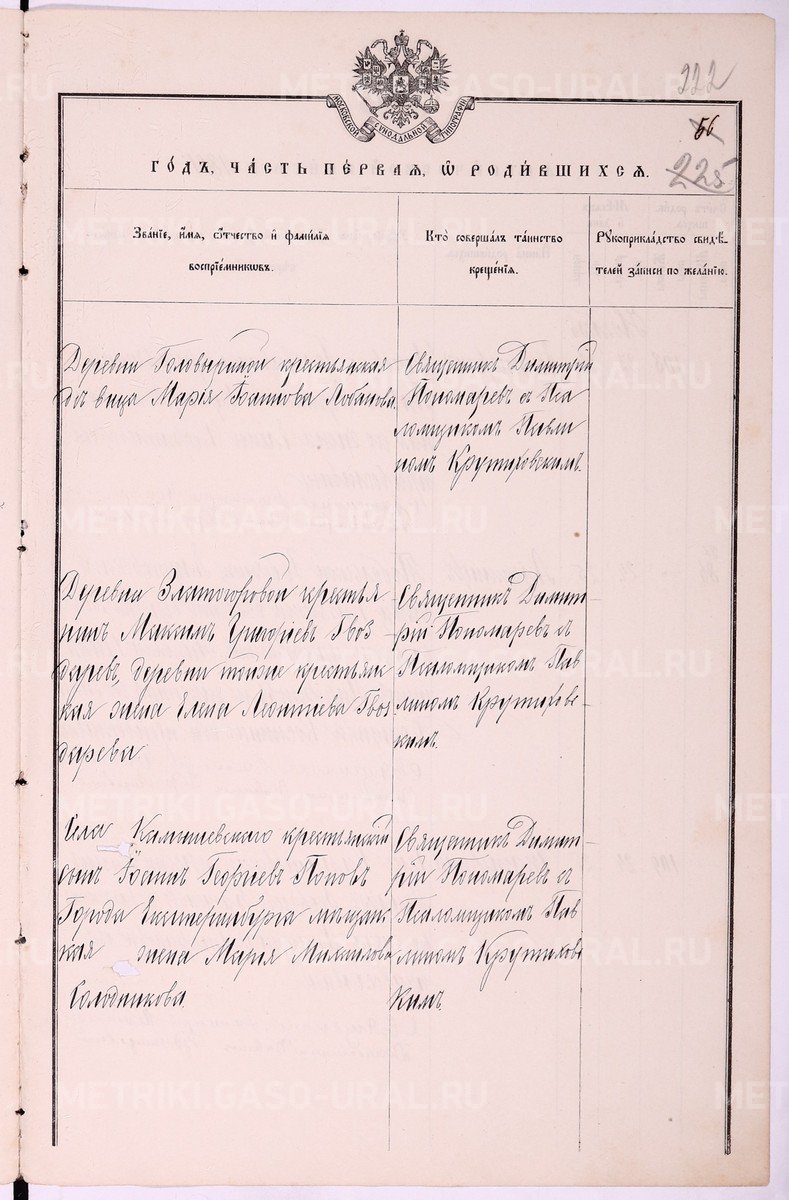 222
56
МОСКОВСКОЙ СѴНОДАЛЬНОЙ ТИПОГРАФІИ
225
ГО́ДЪ, ЧА́СТЬ ПЕ́РВАѦ, Ѡ҆ РОДИ́ВШИХСѦ.
Зва́нїе, и҆́мѧ, ѻ҆́тчество и҆ фами́лїѧ
воспрїе́мникѡвъ.
Кто̀ соверша́лъ та́инство
креще́нїѧ.
Рꙋкоприкла́дство свидѣ́-
телей за́писи по жела́нїю.
Деревни Головыриной крестьянская
дѣвица Марія Іоаннова Лобанова.
Священникъ Димитрій
Пономаревъ съ Пса
ломщикомъ Павли
номъ Крутиховскимъ.
Деревни Златогоровой крестья
нинъ Максимъ Григоріевъ Гвоз
даревъ, деревни тойже крестьянс
кая жена Елена Леонтіева Гвоз
дарева
Священникъ Димит
рій Пономаревъ съ
Псаломщикомъ Пав
линомъ Крутиховс-
кимъ.
Села Камышевскаго крестьянскій
сынъ Іоаннъ Георгіевъ Поповъ
Города Екатеринбурга мѣщанс
кая жена Марія Михаилова
Солодникова
Священникъ Димит
рій Пономаревъ съ
Псаломщикомъ Пав
линомъ Крутиховс
кимъ.
METRIKI.GASO-URAL.RU